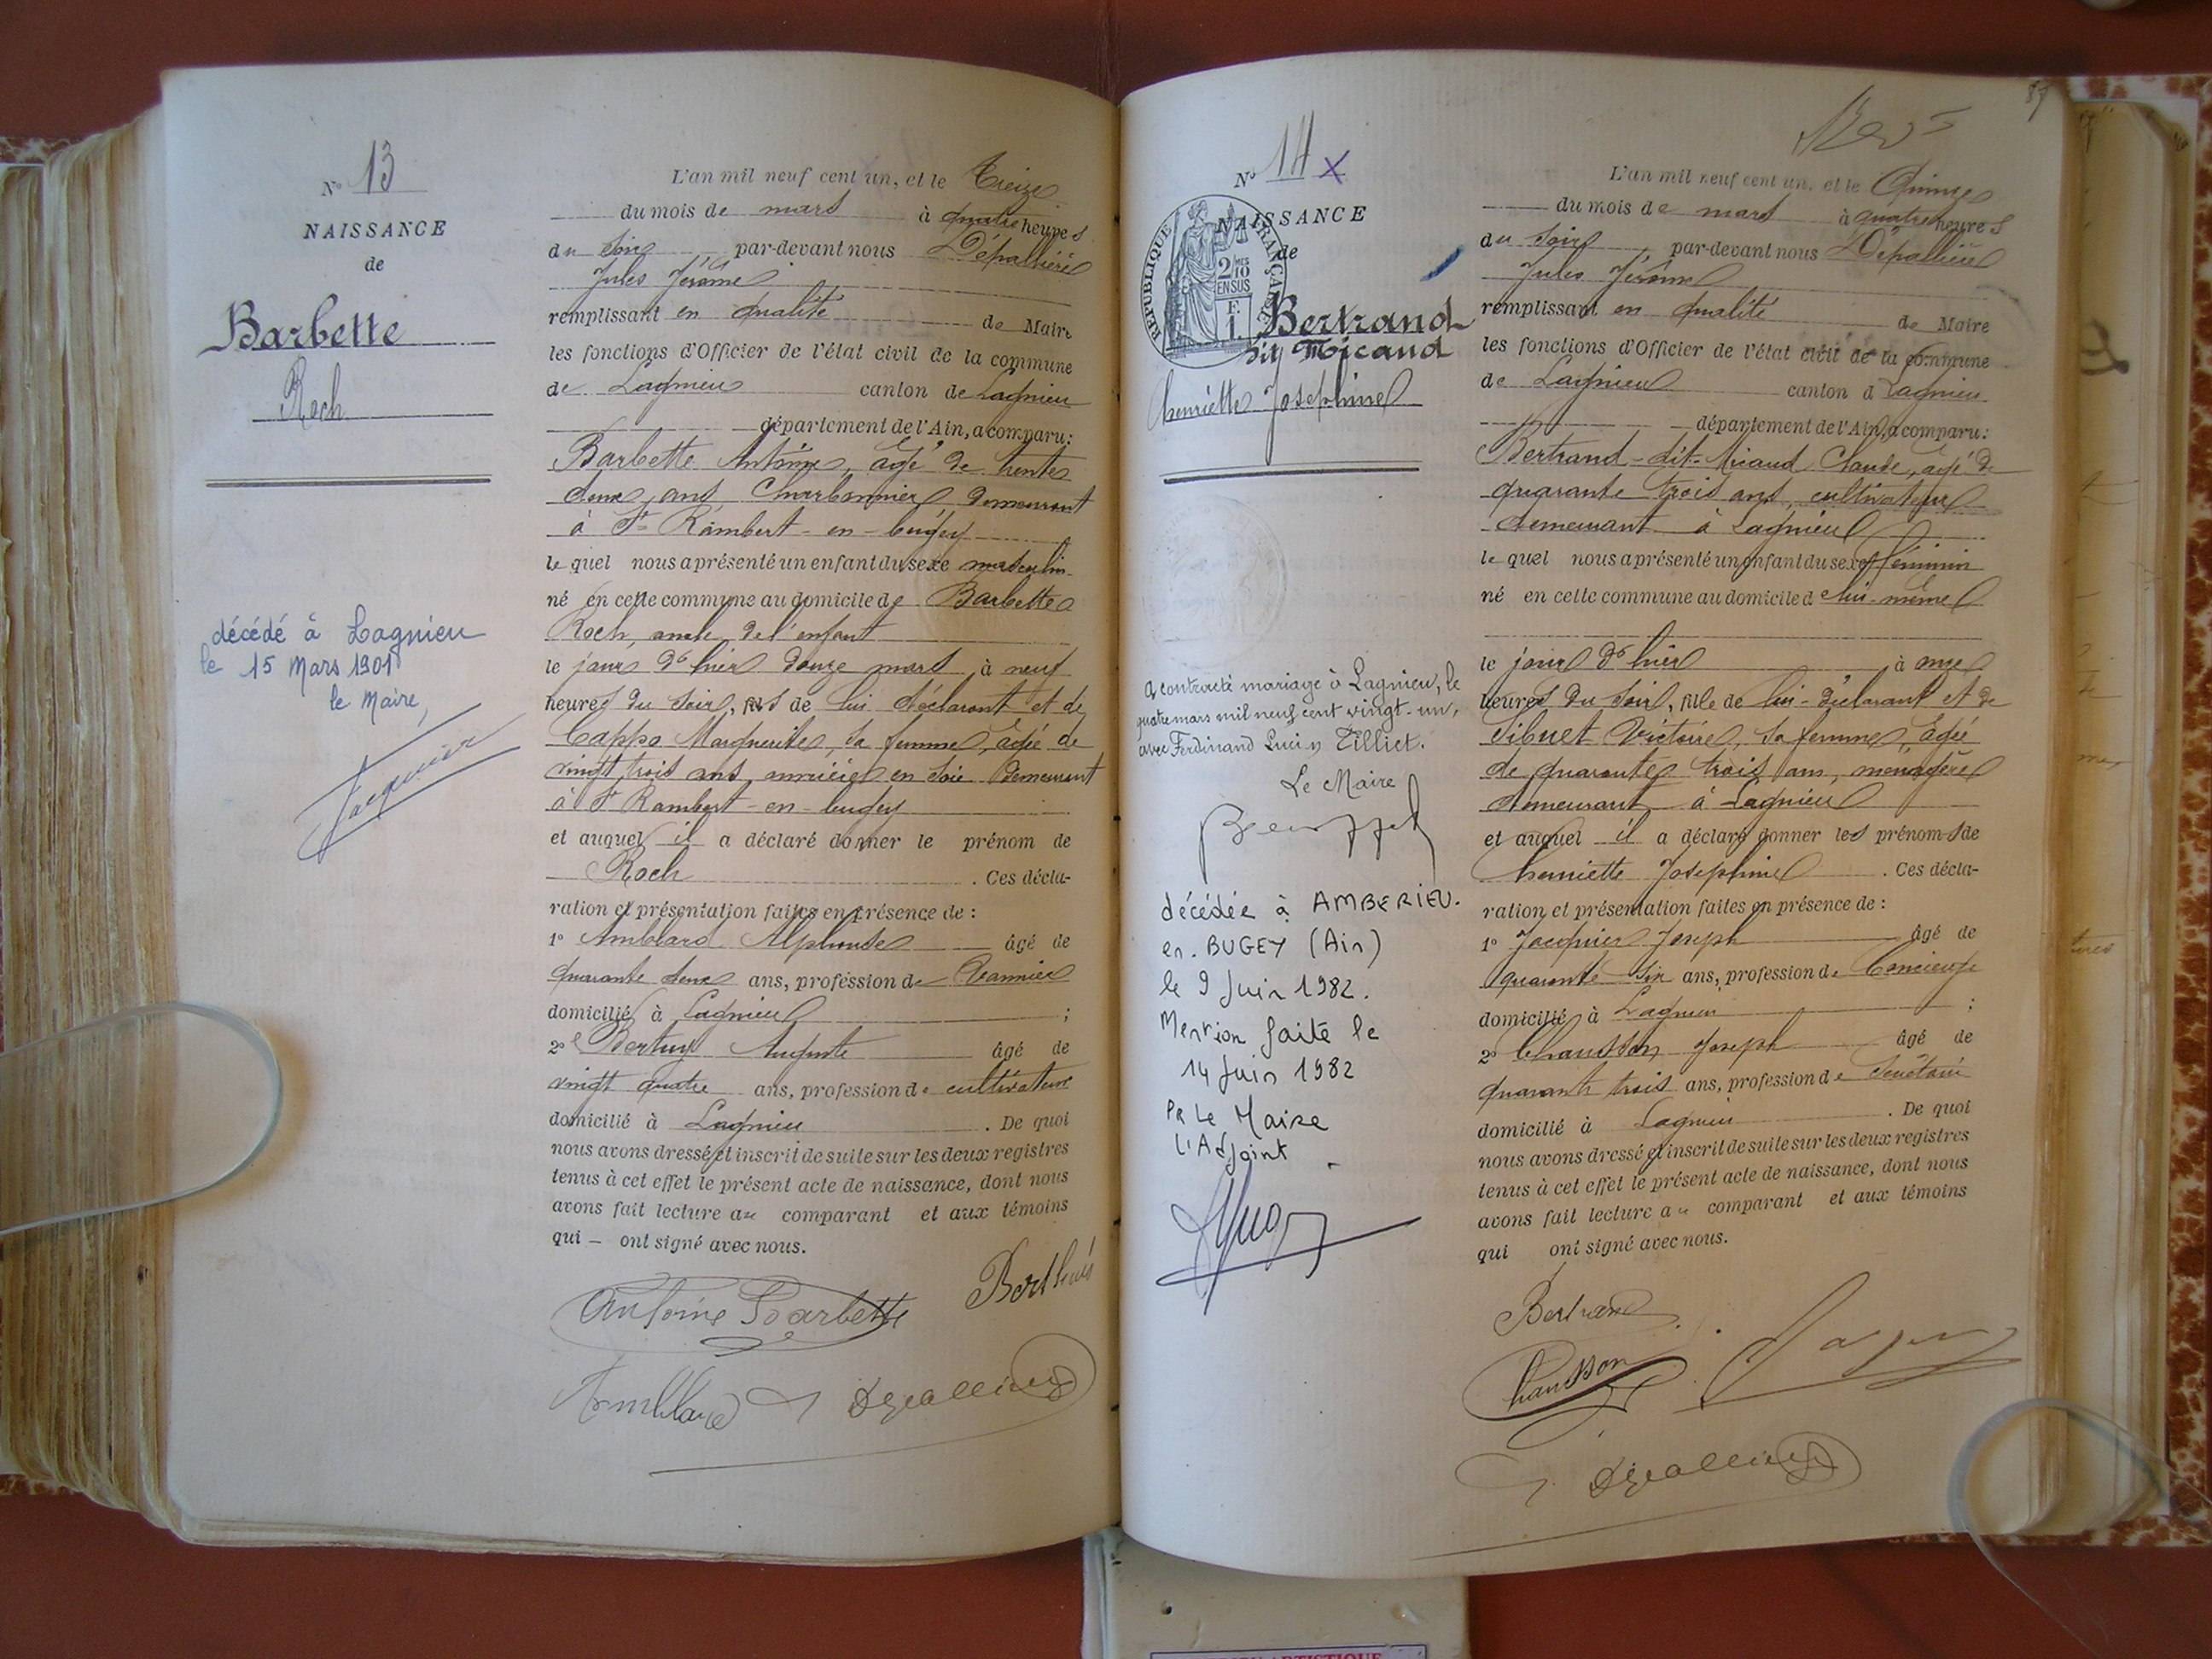 N° 13
NAISSANCE
de
Barbette
Roch
décédé à Lagnieu
le 15 Mars 1901
le Maire,
Jacquier
L'an mil neuf cent un, et le Treize
du mois de mars à quatre heures
du soir par-devant nous Dépallière
Jules Jérôme
remplissant en qualité de Maire
les fonctions d'Officier de l'état civil de la commune
de Lagnieu canton de Lagnieu
département de l'Ain, a comparu:
Barbette Antoine, âgé de trente
deux ans Charbonnier, demeurant
à St Rambert-en-bugey
le quel nous a présenté un enfant du sexe masculin
né en cette commune au domicile de Barbette
Roch, oncle de l'enfant
le jour d'hier douze mars à neuf
heures du soir, fils de lui déclarant et de
Cappo Marguerite, sa femme, âgée de
vingt trois ans, ouvrière en soie demeurant
à St Rambert-en-bugey
et auquel il a déclaré donner le prénom de
Roch . Ces décla-
ration et présentation faites en présence de :
1° Amblard Alphonse âgé de
quarante deux ans, profession de Vannier
domicilié à Lagnieu ;
2° Bertuy Auguste âgé de
vingt quatre ans, profession de cultivateur
domicilié à Lagnieu . De quoi
nous avons dressé et inscrit de suite sur les deux registres
tenus à cet effet le présent acte de naissance, dont nous
avons fait lecture au comparant et aux témoins
qui – ont signé avec nous.
Antoine Barbette
Amblard
N° 14 X
NAISSANCE
de
REPUBLIQUE FRANÇAISE
2/10 EN SUS
F. 1
Bertrand
dit Micaud
henriette Josephine
a contracté mariage à Lagnieu, le
quatre mars mil neuf cent vingt-un,
avec Ferdinand Lucien Tilliet.
Le Maire
décédée à AMBERIEU.
en. BUGEY (Ain)
le 9 Juin 1982.
Mention faite le
14 Juin 1982
Pr Le Maire
l'Adjoint
L'an mil neuf cent un, et le Quinze
du mois de mars à quatre heures
du soir par-devant nous Dépallière
Jules Jérôme
remplissant en qualité de Maire
les fonctions d'Officier de l'état civil de la commune
de Lagnieu canton d Lagnieu
département de l'Ain, a comparu:
Bertrand-dit-Micaud Claude, âgé de
quarante trois ans, cultivateur
demeurant à Lagnieu
le quel nous a présenté un enfant du sexe féminin
né en cette commune au domicile d e lui-même
le jour d'hier à onze
heures du soir, fille de lui-déclarant et de
Sibuet Victoire, sa femme, âgée
de quarante trois ans, ménagère
demeurant à Lagnieu
et auquel il a déclaré donner les prénoms de
henriette Josephine . Ces décla-
ration et présentation faites en présence de :
1° Jacquier Joseph âgé de
quarante six ans, profession de Concierge
domicilié à Lagnieu ;
2° Chausson Joseph âgé de
quarante trois ans, profession de Secrétaire
domicilié à Lagnieu . De quoi
nous avons dressé et inscrit de suite sur les deux registres
tenus à cet effet le présent acte de naissance, dont nous
avons fait lecture au comparant et aux témoins
qui ont signé avec nous.
Bertrand
Chausson